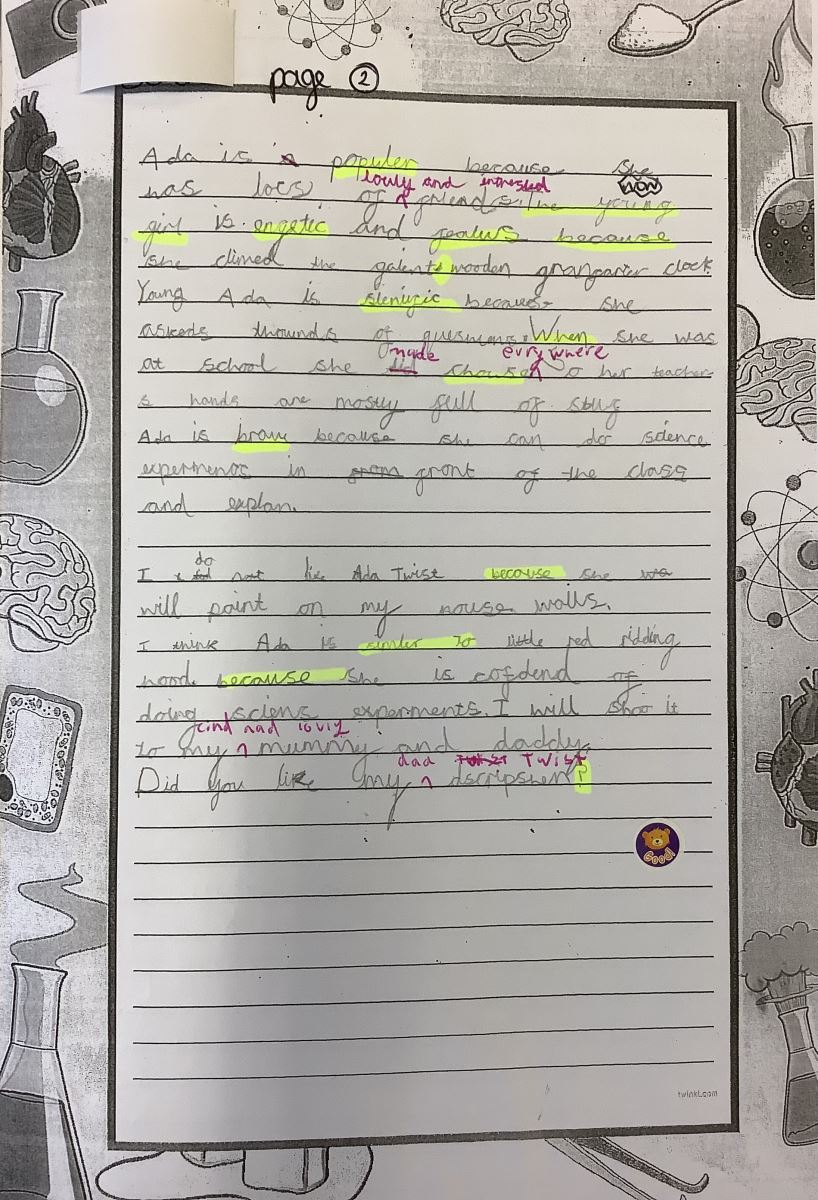 page 2
Ada is a populer because she
lovly and intrested
has locs of friends. The young
girl is engetic and jealuis because
she climed the galent wooden granparier clock
Young Ada is sienific because she
askeds thounds of quesnions. When she was
made evrywhere
at school she did chouse so her teacher
s hands are mosly full of stuf
Ada is brave because she can do science
experimenoc in from front of the class
and explan.
do
I not like Ada Twist because she wo
will paint on my house walls.
I think Ada is simler to little red ridding
hood because she is cofdend of
doing sciens experments. I will shoo it
cind and lovly
to my mummy and daddy.
dad Twist
Did you like my dscripshen?
Good!
twinkl.com